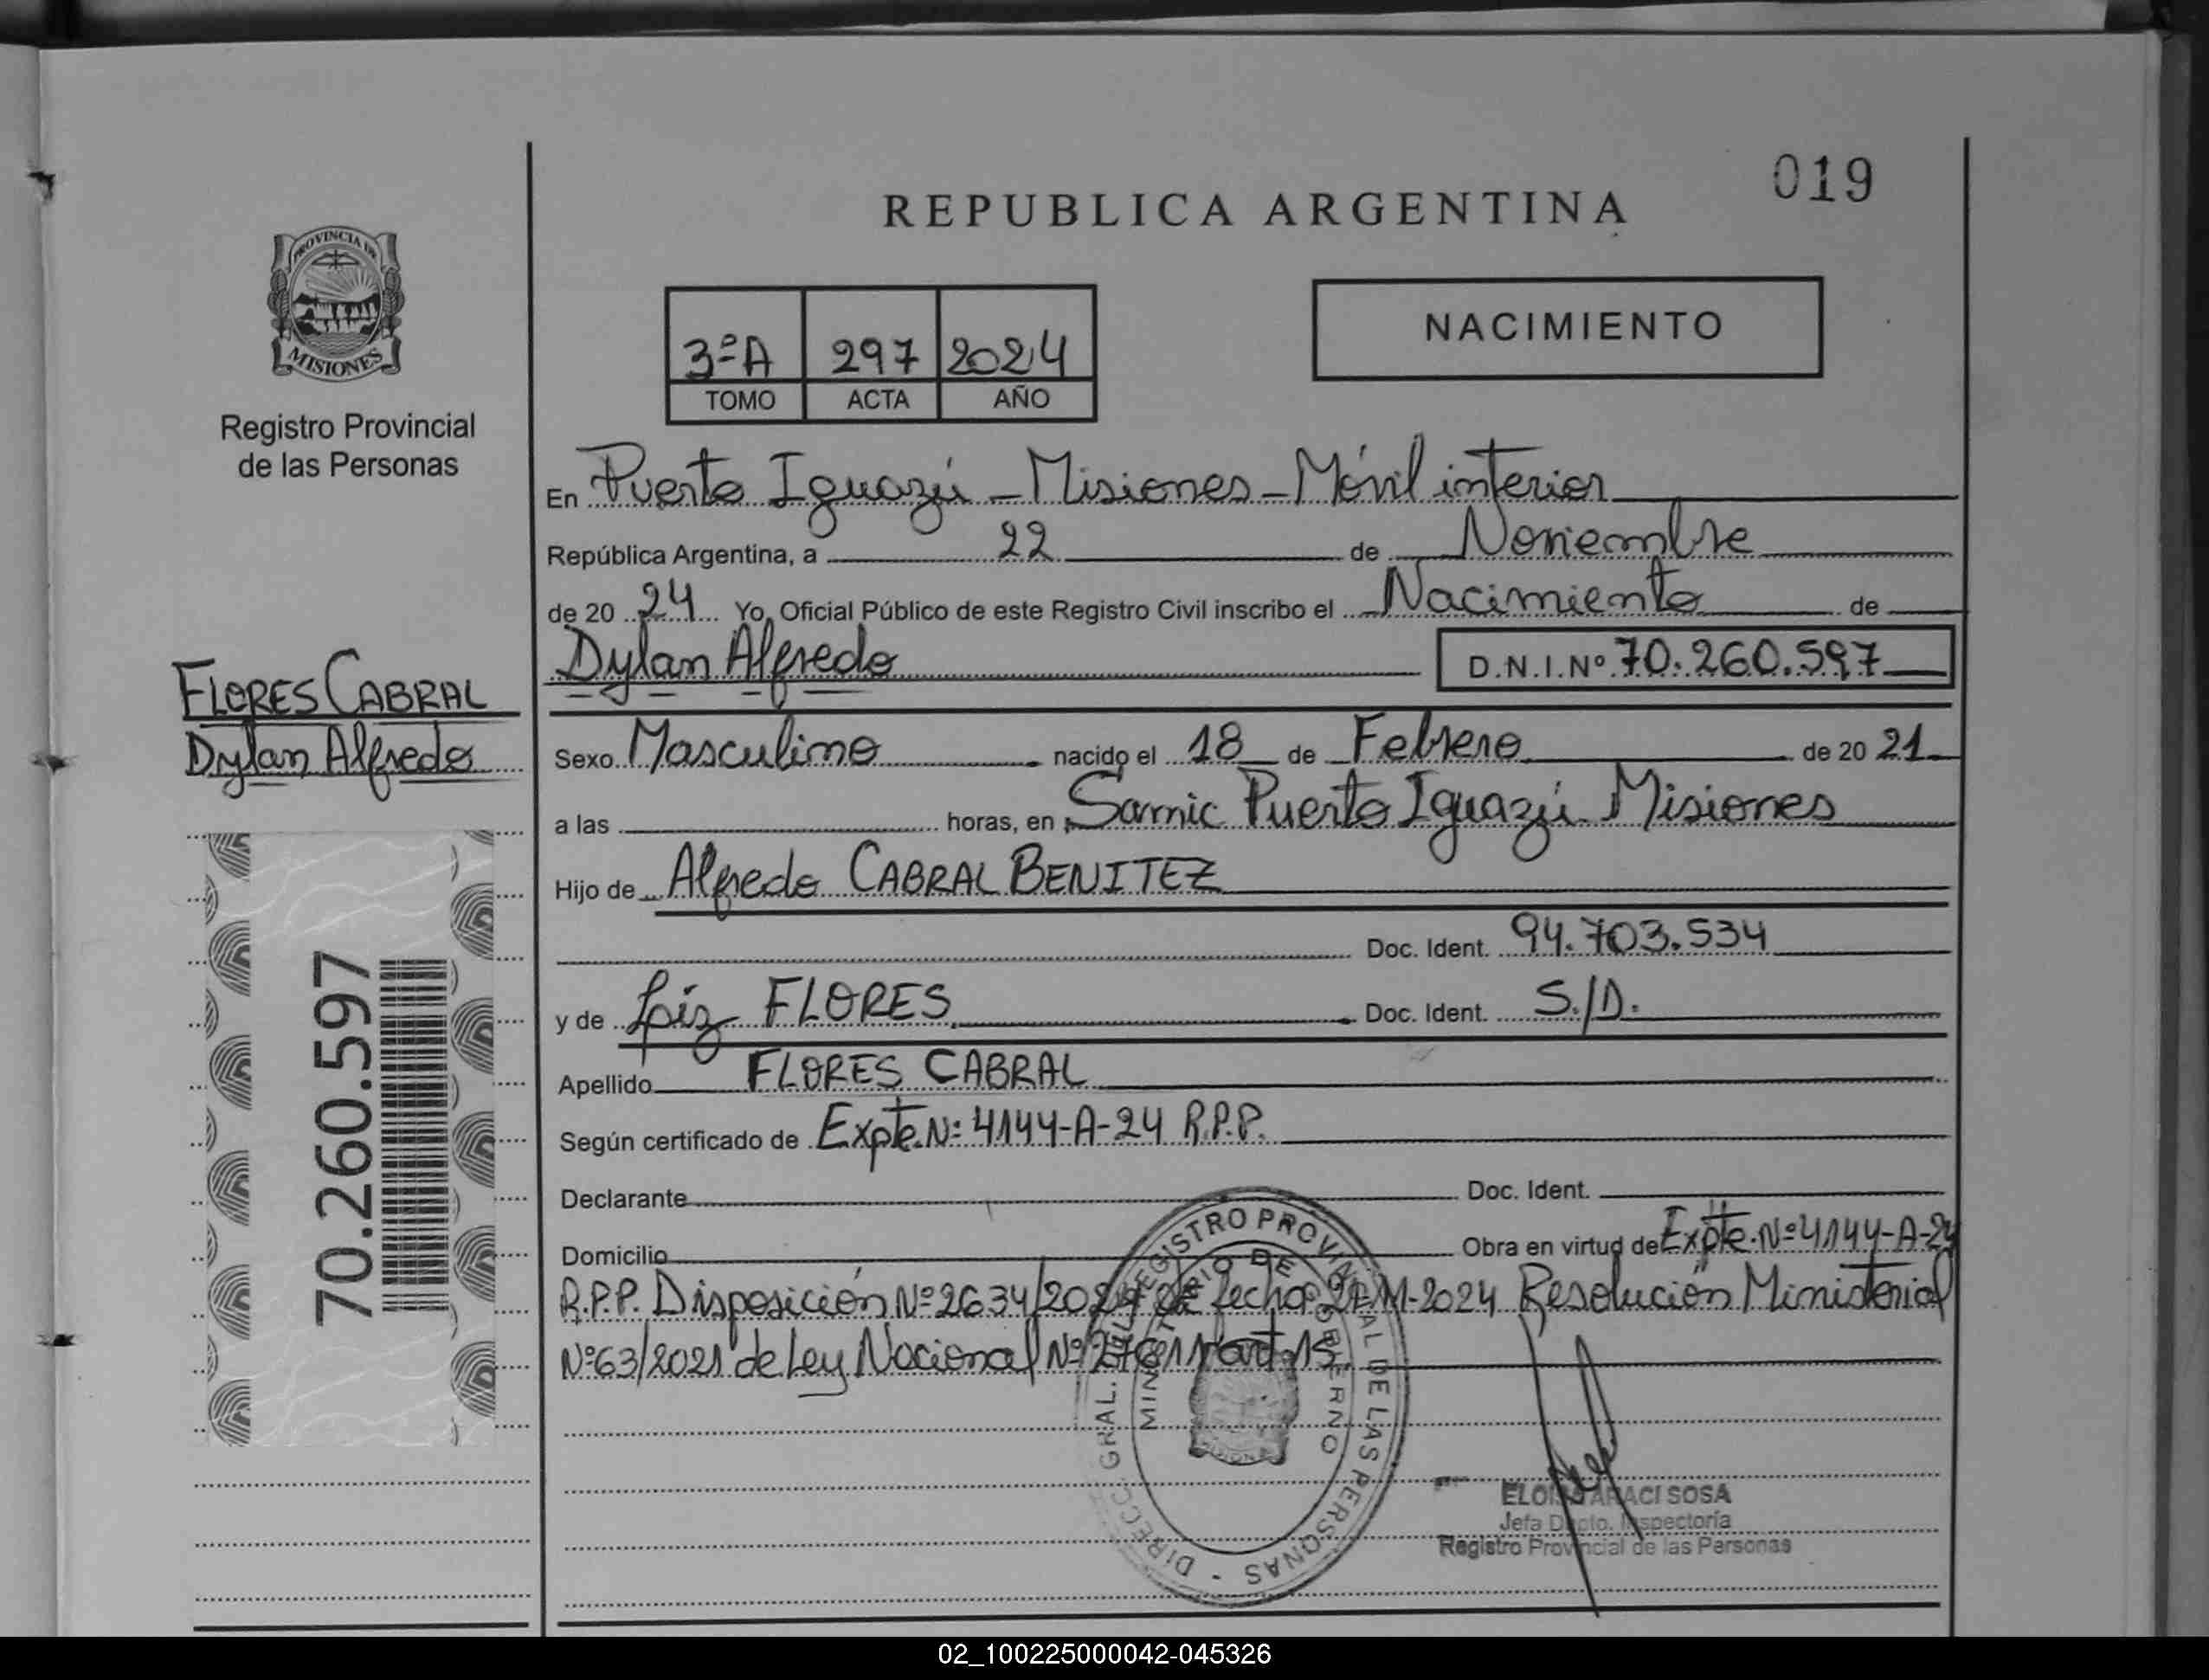 019
REPUBLICA ARGENTINA
PROVINCIA DE
MISIONES
Registro Provincial
de las Personas
3ºA 297 2024
TOMO ACTA AÑO
NACIMIENTO
En Puerto Iguazú - Misiones - Móvil interior
República Argentina, a 22 de Noviembre
de 20 24 Yo, Oficial Público de este Registro Civil inscribo el Nacimiento de
Dylan Alfredo D.N.I.Nº 70.260.597
FLORES CABRAL
Dylan Alfredo
Sexo Masculino nacido el 18 de Febrero de 20 21
a las horas, en Samic Puerto Iguazú Misiones
Hijo de Alfredo CABRAL BENITEZ
Doc. Ident. 94.703.534
y de Liz FLORES Doc. Ident. S/D.
Apellido FLORES CABRAL
Según certificado de Expte.Nº 4144-A-24 R.P.P.
Declarante Doc. Ident.
Domicilio Obra en virtud de Expte.Nº 4144-A-24
R.P.P. Disposición Nº 2634/2024 de fecha -2024 Resolución Ministerial
Nº 63/2021 de Ley Nacional Nº
70.260.597
DIRECC. GRAL. DEL REGISTRO PROVINCIAL DE LAS PERSONAS -
MINISTERIO DE GOBIERNO
ELOISA ARACI SOSA
Jefa Dpto. Inspectoría
Registro Provincial de las Personas
02_100225000042-045326